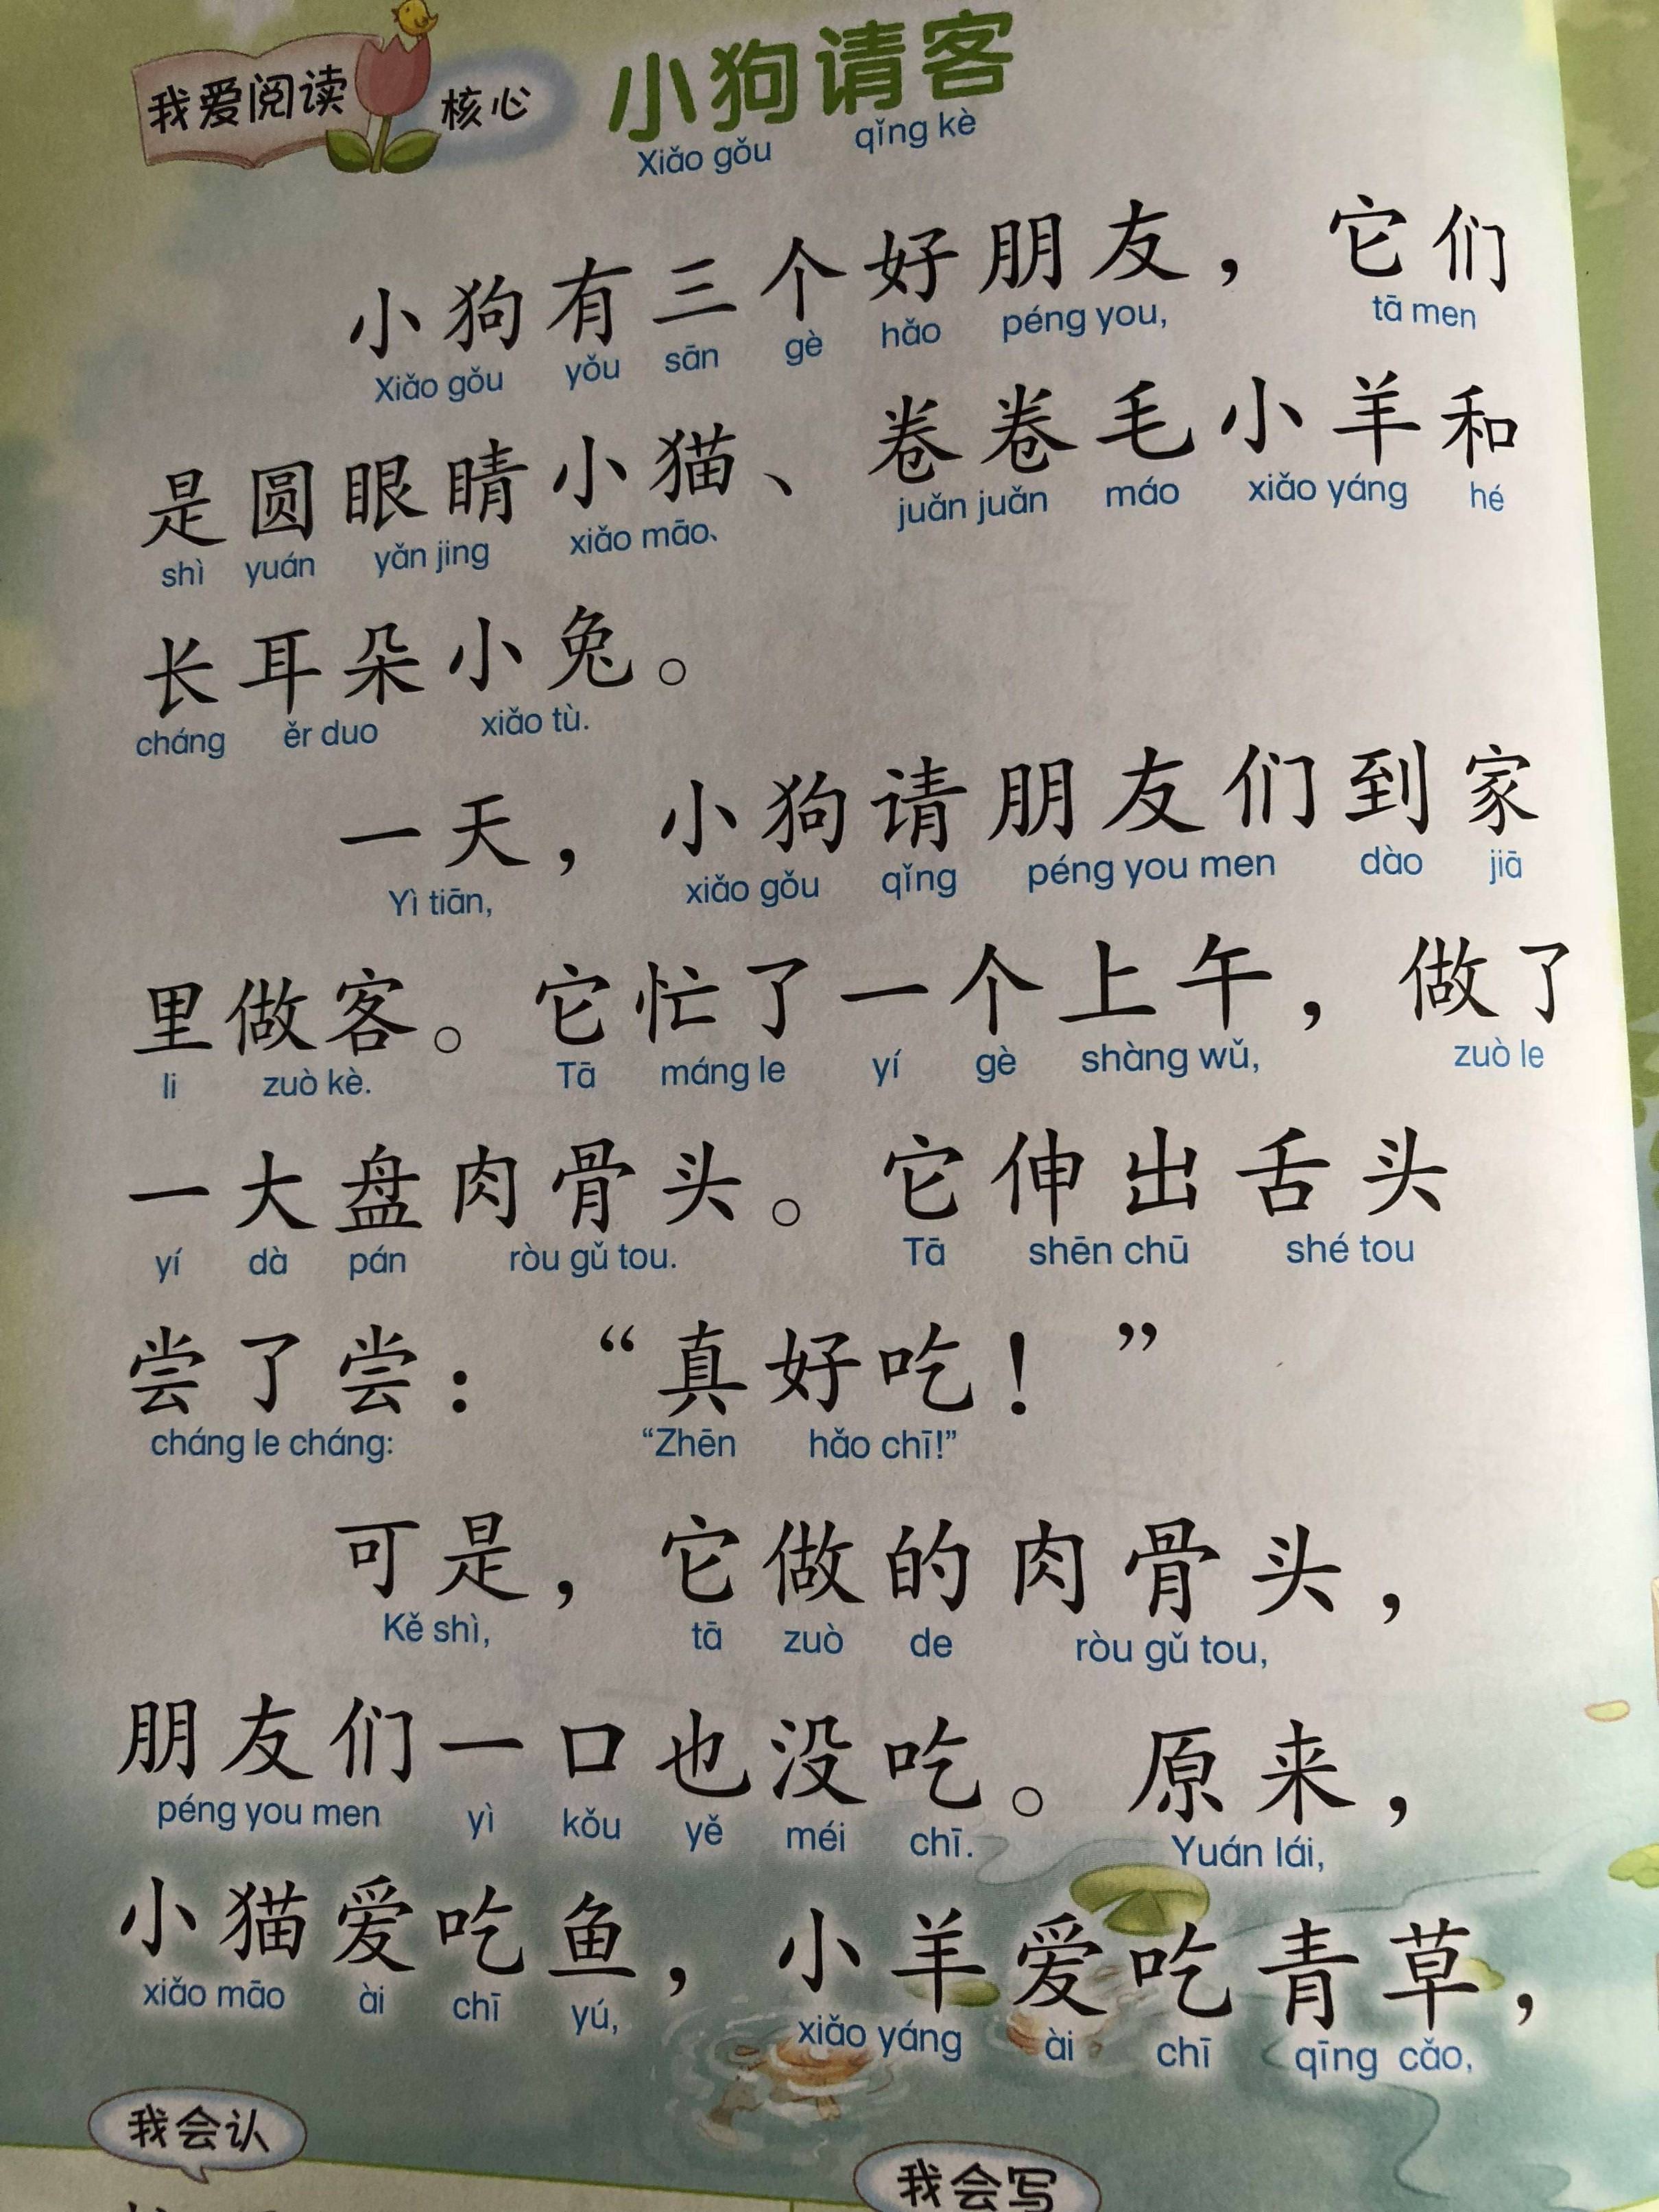 我爱阅读 核心 小狗请客
Xiǎo gǒu qǐng kè
小狗有三个好朋友，它们
Xiǎo gǒu yǒu sān gè hǎo péng you, tā men
是圆眼睛小猫、卷卷毛小羊和
shì yuán yǎn jing xiǎo māo、 juǎn juǎn máo xiǎo yáng hé
长耳朵小兔。
cháng ěr duo xiǎo tù.
一天，小狗请朋友们到家
Yì tiān, xiǎo gǒu qǐng péng you men dào jiā
里做客。它忙了一个上午，做了
li zuò kè. Tā máng le yí gè shàng wǔ, zuò le
一大盘肉骨头。它伸出舌头
yí dà pán ròu gǔ tou. Tā shēn chū shé tou
尝了尝：“真好吃！”
cháng le cháng: “Zhēn hǎo chī!”
可是，它做的肉骨头，
Kě shì, tā zuò de ròu gǔ tou,
朋友们一口也没吃。原来，
péng you men yì kǒu yě méi chī. Yuán lái,
小猫爱吃鱼，小羊爱吃青草，
xiǎo māo ài chī yú, xiǎo yáng ài chī qīng cǎo,
我会认 我会写